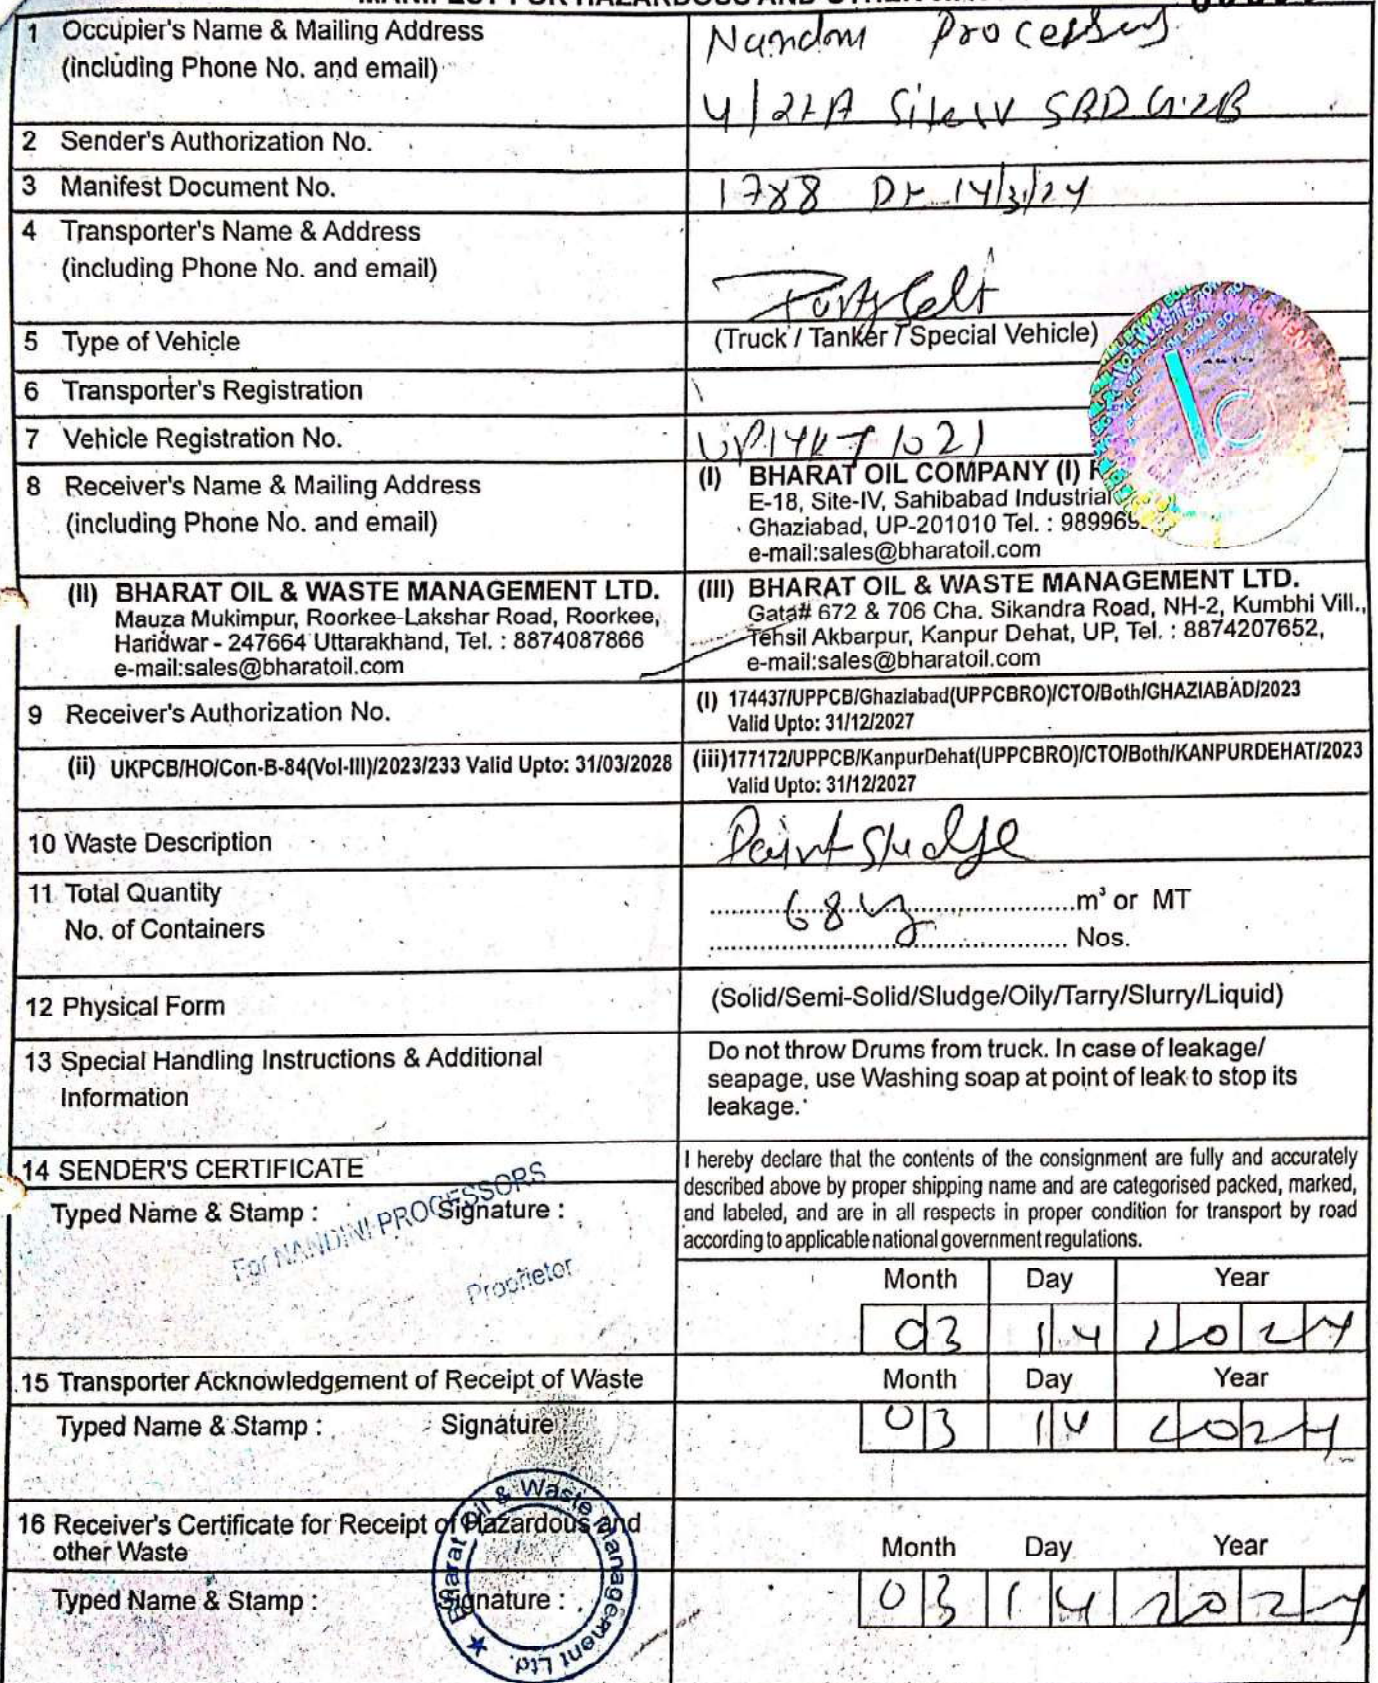 1 Occupier's Name & Mailing Address
(including Phone No. and email)
Processors
4/27A Site IV SBD GZB
2 Sender's Authorization No.
3 Manifest Document No.
1788 Dt 14/3/24
4 Transporter's Name & Address
(including Phone No. and email)
Party Self
5 Type of Vehicle
(Truck / Tanker / Special Vehicle)
6 Transporter's Registration
7 Vehicle Registration No.
UP14KT 1021
8 Receiver's Name & Mailing Address
(including Phone No. and email)
(I) BHARAT OIL COMPANY (I)
E-18, Site-IV, Sahibabad Industrial
Ghaziabad, UP-201010 Tel. :
e-mail:sales@bharatoil.com
(II) BHARAT OIL & WASTE MANAGEMENT LTD.
Mauza Mukimpur, Roorkee-Lakshar Road, Roorkee,
Haridwar - 247664 Uttarakhand, Tel. : 8874087866
e-mail:sales@bharatoil.com
(III) BHARAT OIL & WASTE MANAGEMENT LTD.
Gata# 672 & 706 Cha. Sikandra Road, NH-2, Kumbhi Vill.,
Tehsil Akbarpur, Kanpur Dehat, UP, Tel. : 8874207652,
e-mail:sales@bharatoil.com
9 Receiver's Authorization No.
(I) 174437/UPPCB/Ghaziabad(UPPCBRO)/CTO/Both/GHAZIABAD/2023
Valid Upto: 31/12/2027
(ii) UKPCB/HO/Con-B-84(Vol-III)/2023/233 Valid Upto: 31/03/2028
(iii)177172/UPPCB/KanpurDehat(UPPCBRO)/CTO/Both/KANPURDEHAT/2023
Valid Upto: 31/12/2027
10 Waste Description
Paint Sludge
11 Total Quantity
68 kg m³ or MT
No. of Containers
Nos.
12 Physical Form
(Solid/Semi-Solid/Sludge/Oily/Tarry/Slurry/Liquid)
13 Special Handling Instructions & Additional
Information
Do not throw Drums from truck. In case of leakage/
seapage, use Washing soap at point of leak to stop its
leakage.
14 SENDER'S CERTIFICATE
I hereby declare that the contents of the consignment are fully and accurately
described above by proper shipping name and are categorised packed, marked,
and labeled, and are in all respects in proper condition for transport by road
according to applicable national government regulations.
Typed Name & Stamp : Signature :
For NANDINI PROCESSORS
Proprietor
Month Day Year
03 14 2024
15 Transporter Acknowledgement of Receipt of Waste
Month Day Year
Typed Name & Stamp : Signature
03 14 2024
16 Receiver's Certificate for Receipt of Hazardous and
other Waste
Month Day Year
Typed Name & Stamp : Signature :
03 14 2024
Bharat Oil & Waste Management Ltd. ★